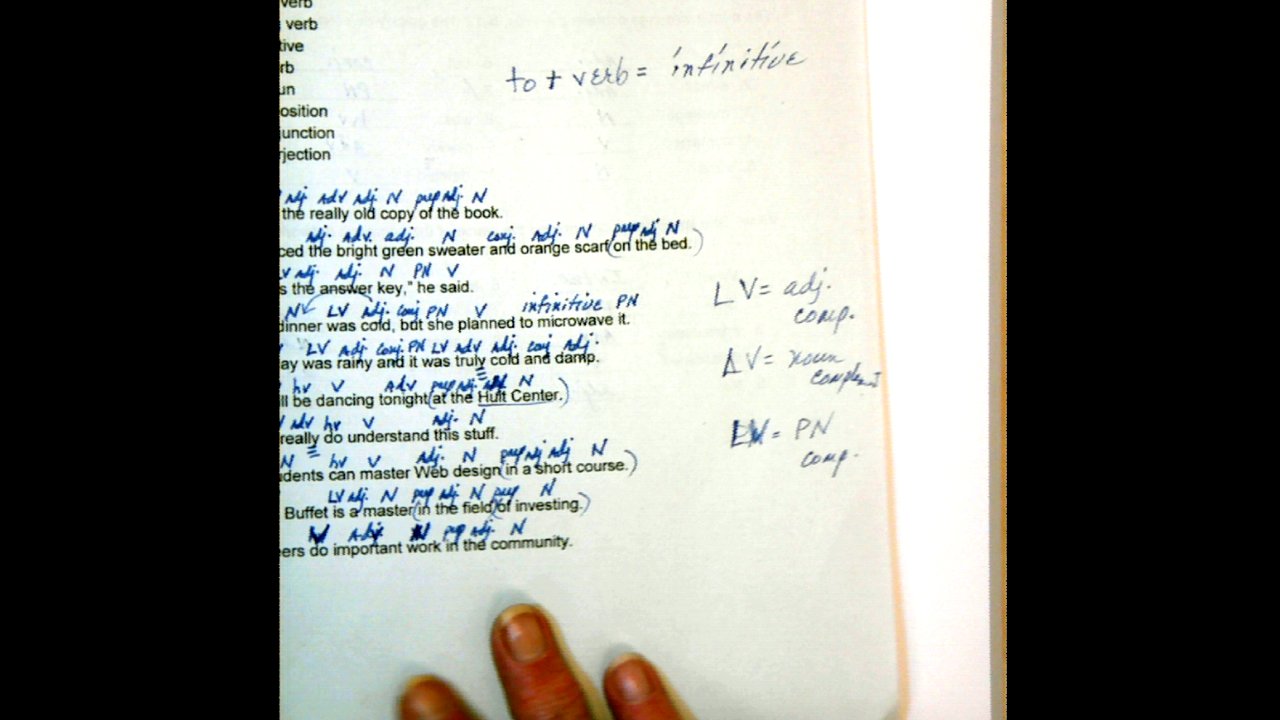 verb
verb
tive
rb
un
osition
junction
rjection
to + verb = infinitive
adj Adv Adj N prep Adj. N
the really old copy of the book.
Adj. Adv. adj. N conj. Adj. N prep Adj N
ced the bright green sweater and orange scarf (on the bed.)
V Adj. Adj. N PN V
s the answer key," he said.
N LV Adj. conj PN V infinitive PN
dinner was cold, but she planned to microwave it.
LV Adj conj. PN LV Adv Adj. conj Adj.
ay was rainy and it was truly cold and damp.
hv V Adv prep Adj. N
ll be dancing tonight (at the Hult Center.)
adv hv V Adj. N
really do understand this stuff.
N hv V Adj. N prep Adj Adj N
udents can master Web design (in a short course.)
LV Adj. N prep Adj N prep N
Buffet is a master (in the field) (of investing.)
V Adj N prep Adj. N
ers do important work in the community.
LV = adj.
comp.
LV = noun
complement
LV = PN
comp.